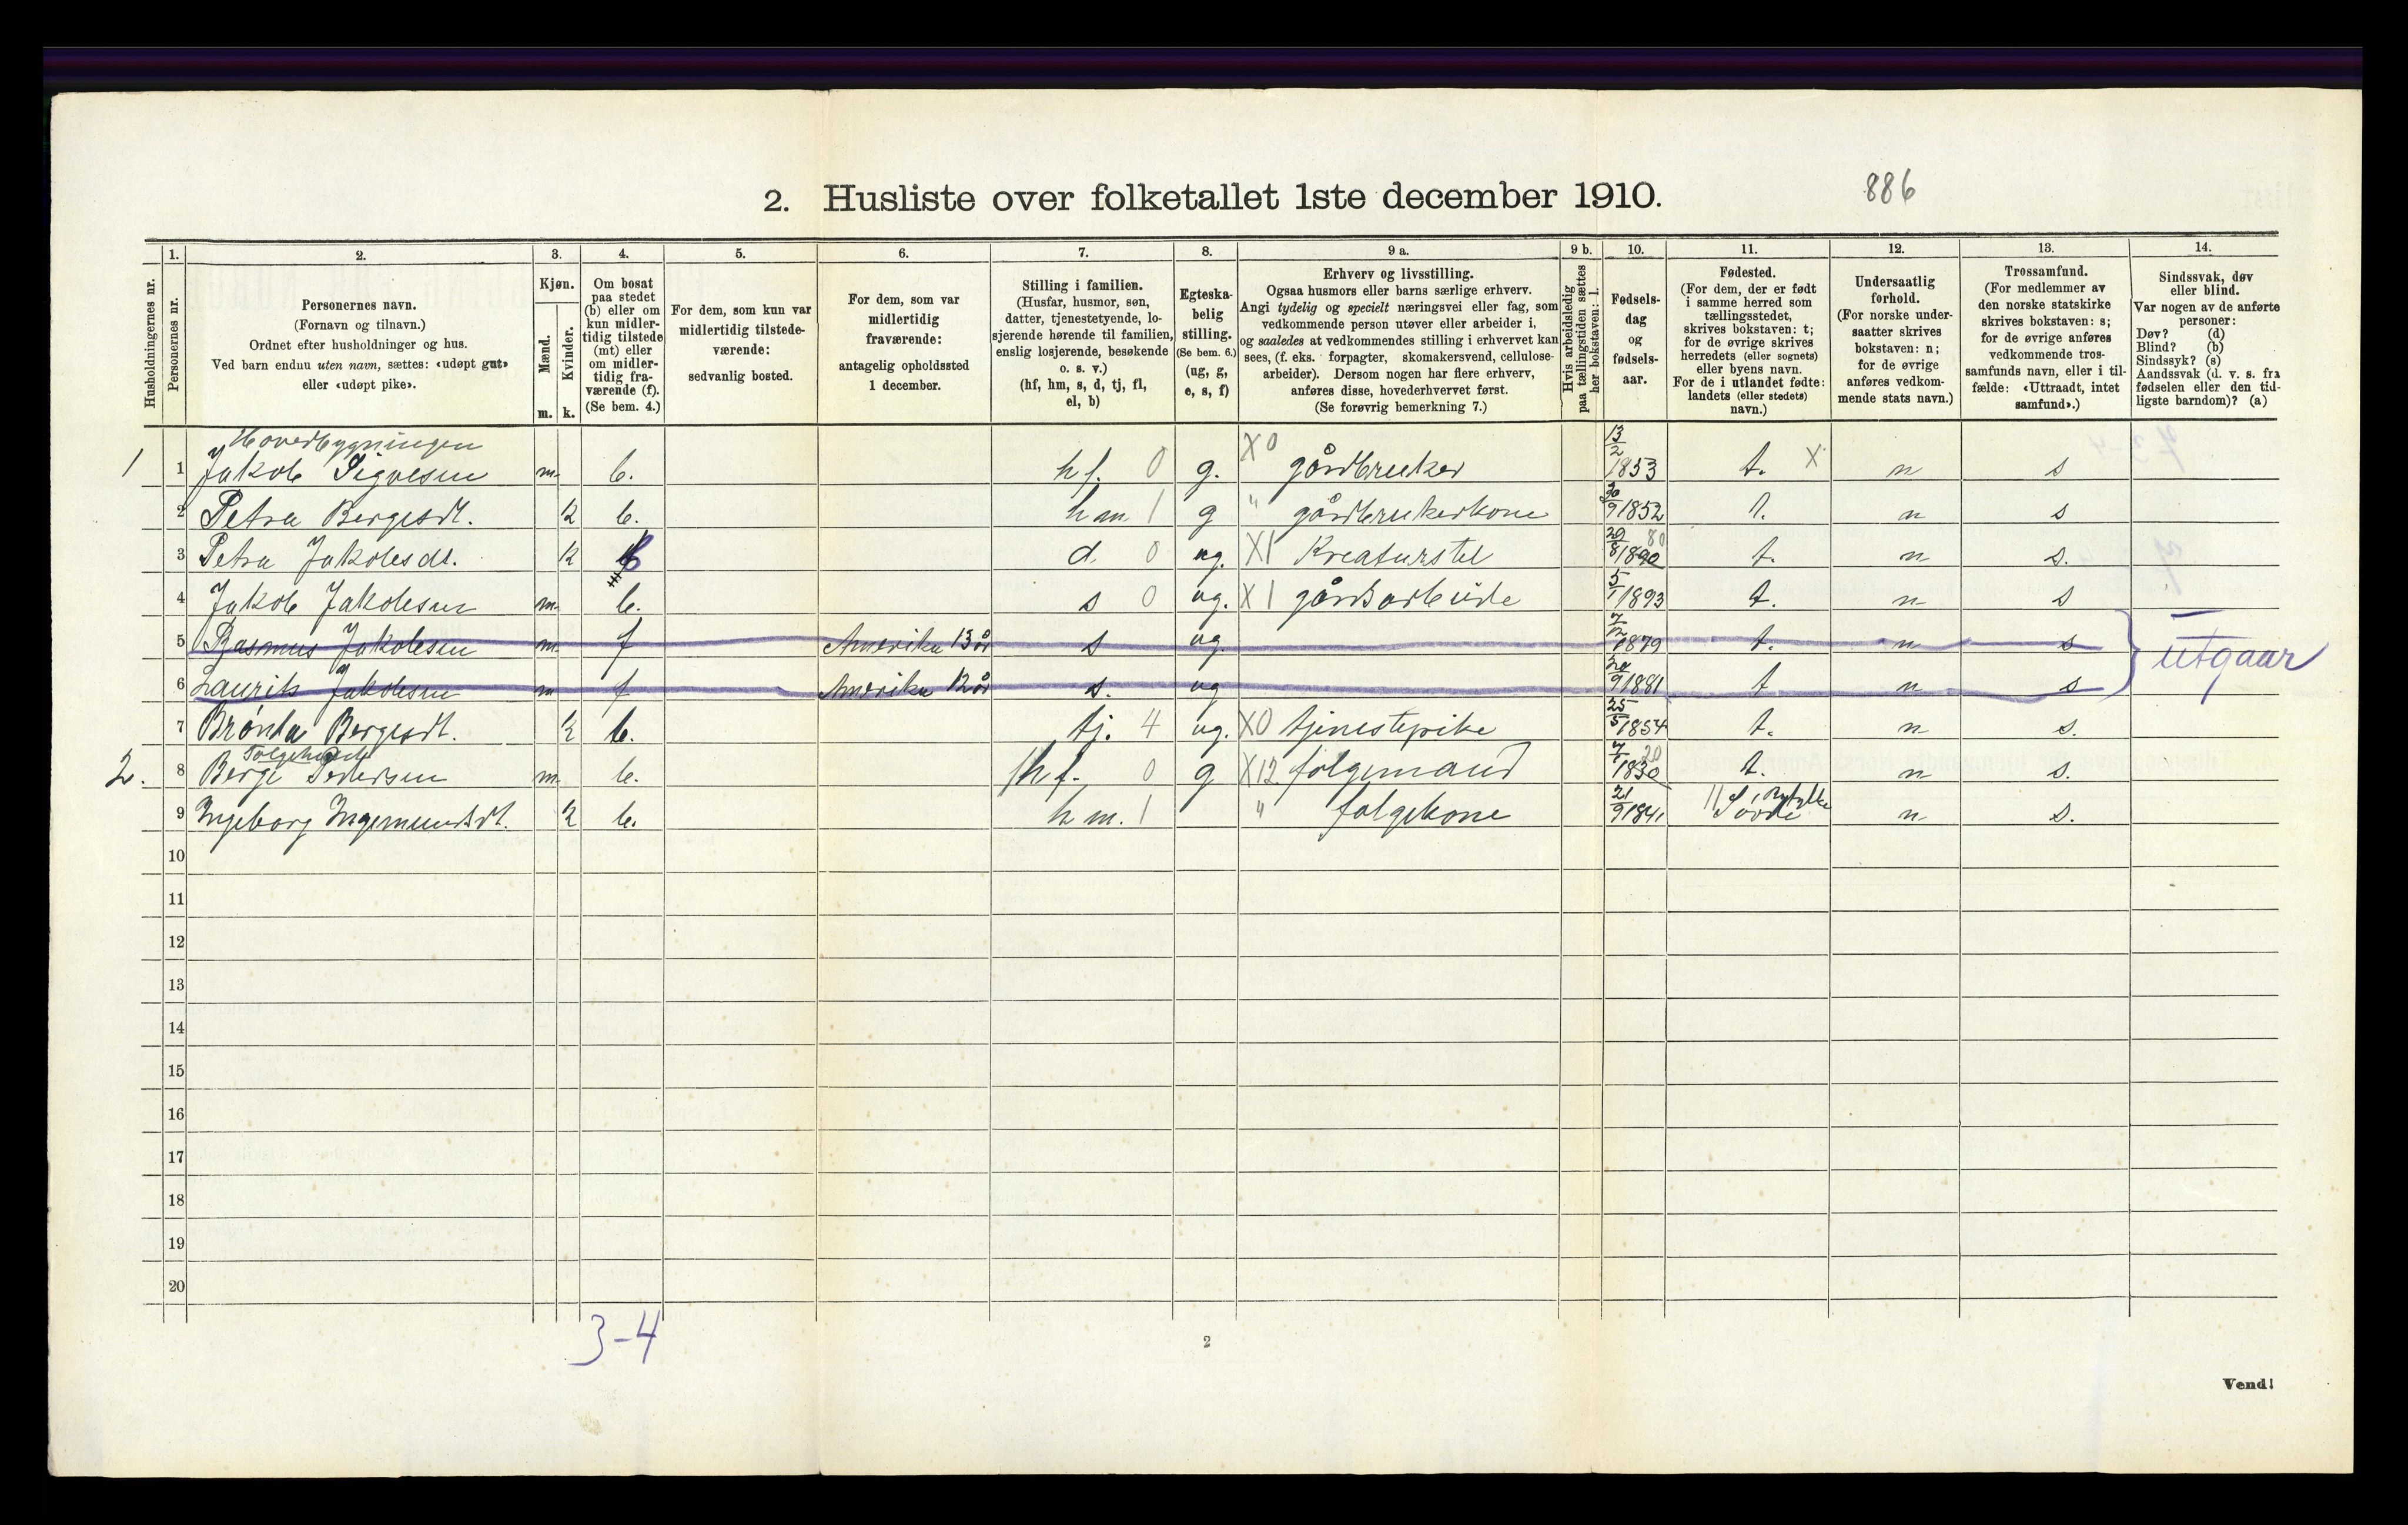 2. Husliste over folketallet 1ste december 1910.
886
Husholdningernes nr.
1.
Personernes nr.
2.
Personernes navn.
(Fornavn og tilnavn.)
Ordnet efter husholdninger og hus.
Ved barn endnu uten navn, sættes: «udøpt gut»
eller «udøpt pike».
3.
Kjøn.
Mænd.
Kvinder.
m.
k.
4.
Om bosat
paa stedet
(b) eller om
kun midler-
tidig tilstede
(mt) eller
om midler-
tidig fra-
værende (f).
(Se bem. 4.)
5.
For dem, som kun var
midlertidig tilstede-
værende:
sedvanlig bosted.
6.
For dem, som var
midlertidig
fraværende:
antagelig opholdssted
1 december.
7.
Stilling i familien.
(Husfar, husmor, søn,
datter, tjenestetyende, lo-
sjerende hørende til familien,
enslig losjerende, besøkende
o. s. v.)
(hf, hm, s, d, tj, fl,
el, b)
8.
Egteska-
belig
stilling.
(Se bem. 6.)
(ug, g,
e, s, f)
9 a.
Erhverv og livsstilling.
Ogsaa husmors eller barns særlige erhverv.
Angi tydelig og specielt næringsvei eller fag, som
vedkommende person utøver eller arbeider i,
og saaledes at vedkommendes stilling i erhvervet kan
sees, (f. eks. forpagter, skomakersvend, cellulose-
arbeider). Dersom nogen har flere erhverv,
anføres disse, hovederhvervet først.
(Se forøvrig bemerkning 7.)
9 b.
Hvis arbeidsledig
paa tællingstiden sættes
her bokstaven: l.
10.
Fødsels-
dag
og
fødsels-
aar.
11.
Fødested.
(For dem, der er født
i samme herred som
tællingsstedet,
skrives bokstaven: t;
for de øvrige skrives
herredets (eller sognets)
eller byens navn.
For de i utlandet fødte:
landets (eller stedets)
navn.)
12.
Undersaatlig
forhold.
(For norske under-
saatter skrives
bokstaven: n;
for de øvrige
anføres vedkom-
mende stats navn.)
13.
Trossamfund.
(For medlemmer av
den norske statskirke
skrives bokstaven: s;
for de øvrige anføres
vedkommende tros-
samfunds navn, eller i til-
fælde: «Uttraadt, intet
samfund».)
14.
Sindssvak, døv
eller blind.
Var nogen av de anførte
personer:
Døv? (d)
Blind? (b)
Sindssyk? (s)
Aandssvak (d. v. s. fra
fødselen eller den tid-
ligste barndom)? (a)
Hovedbygningen
1 1 Jakob Sigvesen m. b. hf. 0 g. X0 gårdbruker 13/2 1853 t. X n s
2 Petra Bergesdt. k b. hm. 1 g " gårdbrukerkone 30/9 1852 t. n s
3 Petra Jakobsdt. k b d. 0 ug. X1 Kreaturstel 29/8 1890 80 t. n s.
4 Jakob Jakobsen m. b. s 0 ug. X1 gårdsarbeide 5/1 1893 t. n s
5 Rasmus Jakobsen m. f Amerika 13 år s ug. 7/12 1879 t. n s
6 Laurits Jakobsen m f Amerika 12 år s. ug 20/9 1881 t n s
utgaar
7 Brønla Bergesdt. k b. tj. 4 ug. X0 tjenestepike 25/5 1854 t. n s.
2. 8 Berge Pedersen m. b. hf. 0 g X12 følgemand 7/7 1830 20 t. n s.
9 Ingeborg Ingemundsdt. k b. hm. 1 " følgekone 21/9 1841 Sövde i Ryfylke n s.
10
11
12
13
14
15
16
17
18
19
20
3-4
2
Vend!